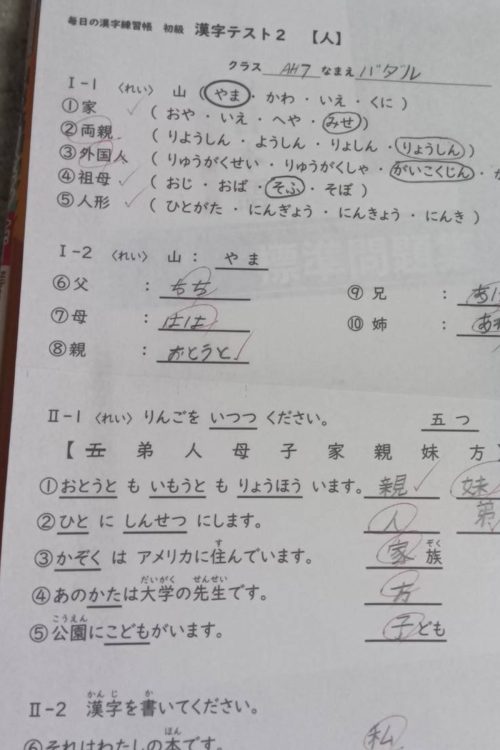 毎日の漢字練習帳 初級 漢字テスト2 【人】
クラス AH7 なまえ バタル
Ⅰ-1 〈れい〉 山 ( やま ・ かわ ・ いえ ・ くに )
①家 ( おや ・ いえ ・ へや ・ みせ )
②両親 ( りようしん ・ ようしん ・ りょしん ・ りょうしん )
③外国人 ( りゅうがくせい ・ りゅうがくしゃ ・ がいこくじん ・ が
④祖母 ( おじ ・ おば ・ そふ ・ そぼ )
⑤人形 ( ひとがた ・ にんぎょう ・ にんきょう ・ にんき )
Ⅰ-2 〈れい〉 山 : やま
⑥父 : ちち ⑨兄 : あに
⑦母 : はは ⑩姉 : あね
⑧親 : おとうと
Ⅱ-1 〈れい〉 りんごを いつつ ください。 五つ
【 五 弟 人 母 子 家 親 妹 方 】
①おとうと も いもうと も りょうほう います。 親 妹
弟
②ひと に しんせつ にします。 人
③かぞく は アメリカに住んでいます。 家族
す ぞく
④あのかたは大学の先生です。 方
だいがく せんせい
⑤公園にこどもがいます。 子ども
こうえん
Ⅱ-2 漢字を書いてください。
かんじ か
⑥それはわたしの本です。 私
ほん